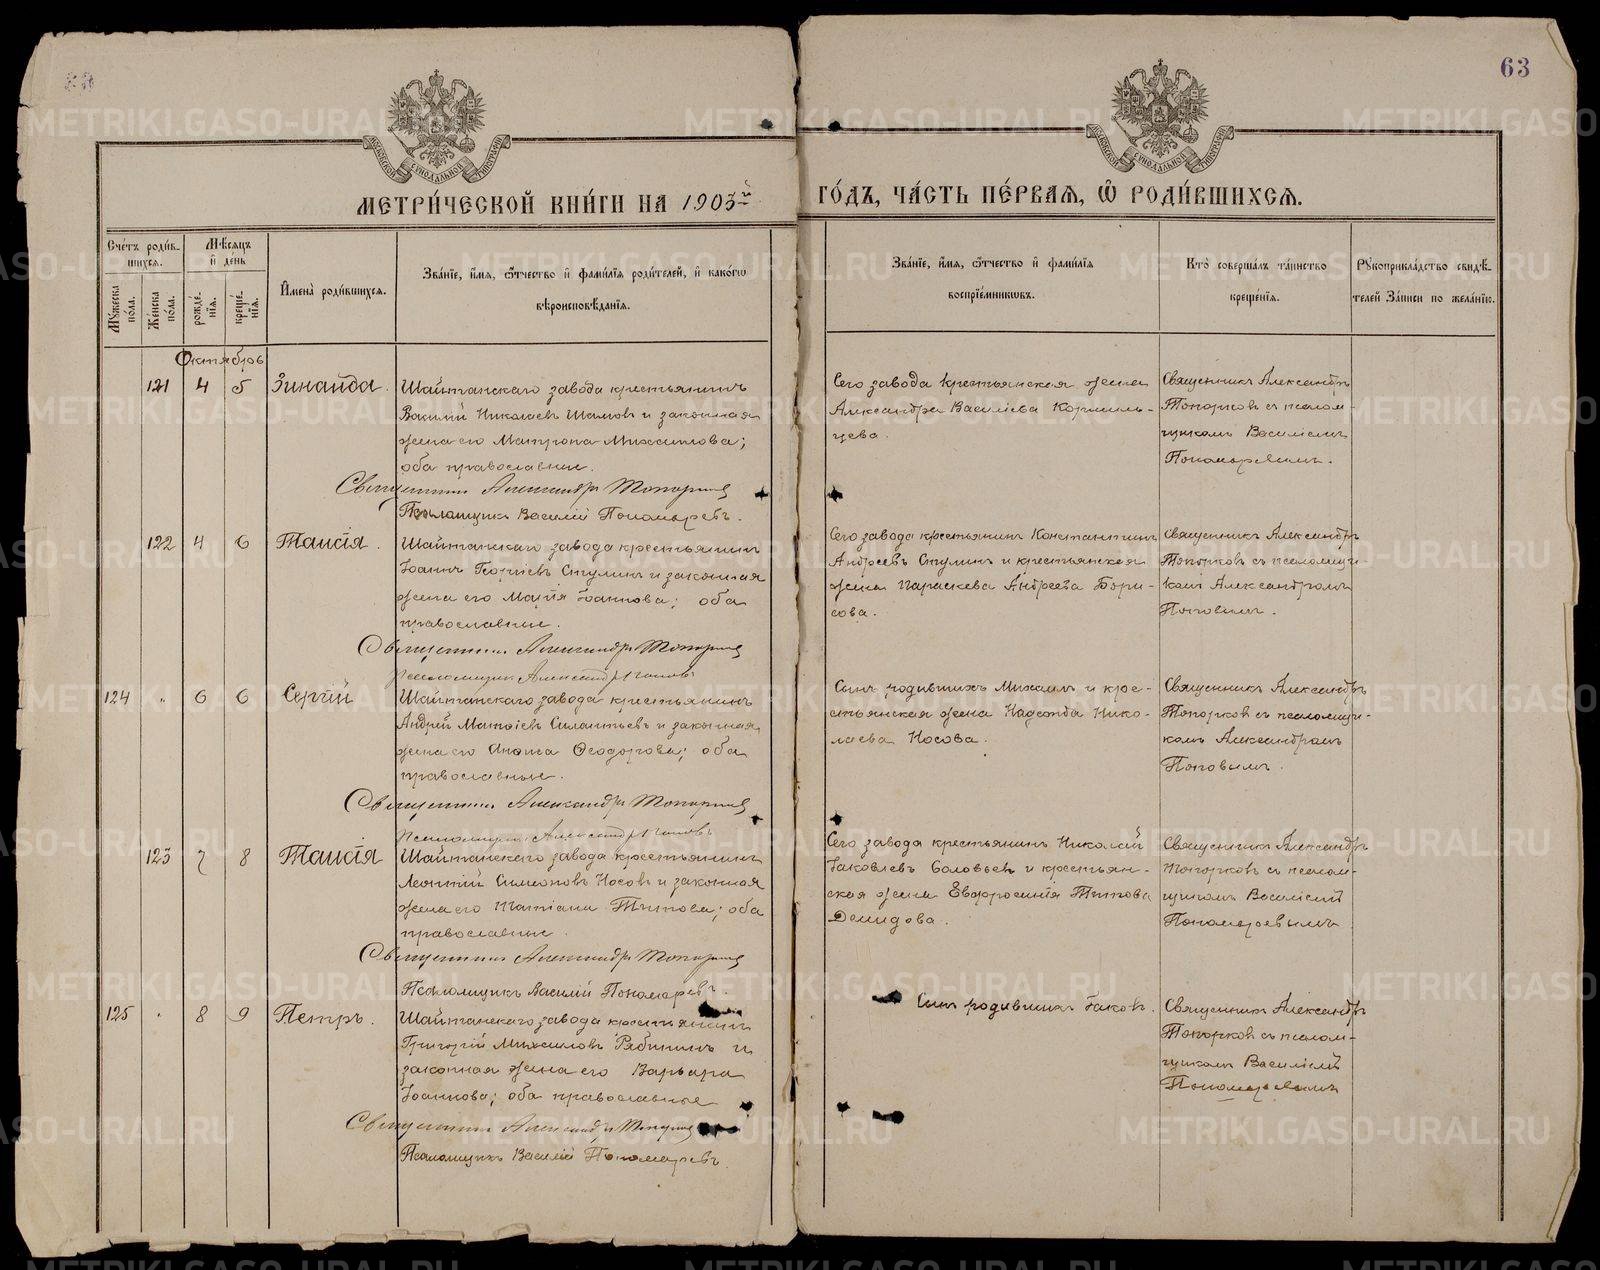 63
МОСКОВСКОЙ СѴНОДАЛЬНОЙ ТИПОГРАФІИ
МОСКОВСКОЙ СѴНОДАЛЬНОЙ ТИПОГРАФІИ
МЕТРИ́ЧЕСКОЙ КНИ́ГИ НА 1903й ГО́ДЪ, ЧА́СТЬ ПЕ́РВАЯ, Ѡ РОДИ́ВШИХСЯ.
Сче́тъ роди́в-
шихся.
Мѣ́сяцъ
и де́нь
Мꙋ́жеска по́ла.
Же́нска по́ла.
рожде́-
нїя.
креще́-
нїя.
И҆мена̀ роди́вшихся.
Зва́нїе, и҆́мя, ѻ҆́тчество и҆ фами́лїя роди́телей, и҆ како́гѡ
вѣроисповѣ́данїя.
Зва́нїе, и҆́мя, ѻ҆́тчество и҆ фами́лїя
воспрїе́мникѡвъ.
Кто̀ соверша́лъ та́инство
креще́нїя.
Рꙋкоприкла́дство свидѣ́-
телей за́писи по жела́нїю.
Октябрь
121 4 5 Зинаида.
Шайтанскаго завода крестьянинъ
Василій Николаевъ Шамовъ и законная
жена его Матрона Михаилова;
оба православные.
Священникъ Александръ Топорковъ
Псаломщикъ Василій Пономаревъ.
Сего завода крестьянская жена
Александра Васильева Кормиль-
цева.
Священникъ Александръ
Топорковъ съ псалом-
щикомъ Василіемъ
Пономаревымъ.
122 4 6 Таисія.
Шайтанскаго завода крестьянинъ
Іоаннъ Георгіевъ Стулинъ и законная
жена его Марія Іоаннова; оба
православные.
Священникъ Александръ Топорковъ
Псаломщикъ Александръ Поповъ
Сего завода крестьянинъ Константинъ
Андреевъ Стулинъ и крестьянская
жена Параскева Андреева Бори-
сова.
Священникъ Александръ
Топорковъ съ псаломщи-
комъ Александромъ
Поповымъ.
124 " 6 6 Сергій
Шайтанскаго завода крестьянинъ
Андрей Матѳіевъ Силантьевъ и законная
жена его Анѳиса Ѳеодорова; оба
православные.
Священникъ Александръ Топорковъ
Псаломщикъ Александръ Поповъ
Сынъ родившихъ Михаилъ и кре-
стьянская жена Надежда Нико-
лаева Носова.
Священникъ Александръ
Топорковъ съ псаломщи-
комъ Александромъ
Поповымъ.
123 7 8 Таисія
Шайтанскаго завода крестьянинъ
Леонтій Симеоновъ Носовъ и законная
жена его Татіана Титова; оба
православные.
Священникъ Александръ Топорковъ
Псаломщикъ Василій Пономаревъ.
Сего завода крестьянинъ Николай
Іаковлевъ Соловьевъ и крестьян-
ская жена Евфросинія Титова
Демидова.
Священникъ Александръ
Топорковъ съ псалом-
щикомъ Василіемъ
Пономаревымъ
125 " 8 9 Петръ.
Шайтанскаго завода крестьянинъ
Григорій Михаиловъ Рябининъ и
законная жена его Варвара
Іоаннова; оба православные
Священникъ Александръ Топорковъ
Псаломщикъ Василій Пономаревъ.
Сынъ родившихъ Іаковъ.
Священникъ Александръ
Топорковъ съ псалом-
щикомъ Василіемъ
Пономаревымъ